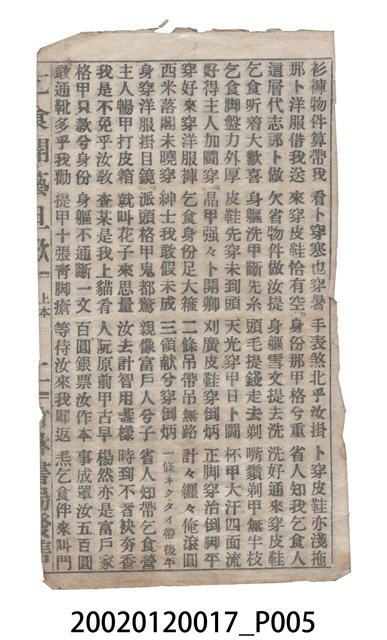 衫褲物件算帶我 看卜穿塞也穿暑 手表煞北乎汝掛 卜穿皮鞋亦淺拖
那卜洋服借我送 來穿皮鞋恰有空 身份那甲格兮重 省人知我乞食人
這層代志那卜做 欠省物件做汝提 身軀雪文提去洗 洗好通來穿皮鞋
乞食听着大歡喜 身軀洗甲斷先糸 頭毛提錢走去剃 嘴鬚剃甲無半枝
乞食脚盤力外厚 皮鞋先穿未到頭 天光穿甲日卜鬪 杯甲大汗四面流
好得主人加鬪穿 品甲強々卜開脚 刈廣皮鞋穿倒炳 正脚穿治倒脚平
穿好來穿洋服褲 乞食身份足大箍 二條吊帶吊無路 計々纒々俺滾圓
西米落閣未曉穿 紳士我敢假未成 三領献兮穿倒炳 一條ネクタイ帶後平
身穿洋服掛目鏡 派頭格甲鬼都驚 親像富戶人兮子 省人知帶乞食營
主人暢甲打皮箱 就叫花子來思量 汝去計智用盞樣 時到不吝袂夯香
我是不免乎汝敎 查某是我上貓看 人阮原前甲古早 楊然亦是富戶家
格甲只款兮身份 身軀不通斷一文 百圓銀票汝作本 事成罩汝五百圓
敢通靴多乎我勸 提甲十張靑脚瘡 等待汝來我卽返 焄乞食伴來叫門
乞食開藝旦歌 上本 二 林書局發售
20020120017_P005